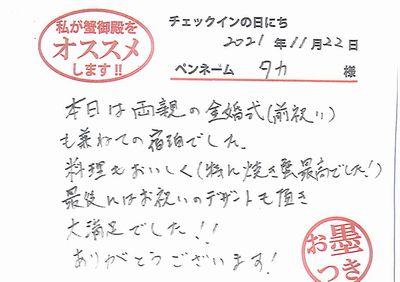 私が蟹御殿を
オススメ
します!!
チェックインの日にち
2021年11月22日
ペンネーム タカ 様
本日は両親の金婚式(前祝い)
も兼ねての宿泊でした。
料理もおいしく(特に焼き蟹最高でした!)
最後にはお祝いのデザートも頂き
大満足でした!!
ありがとうございます!
お墨
つき